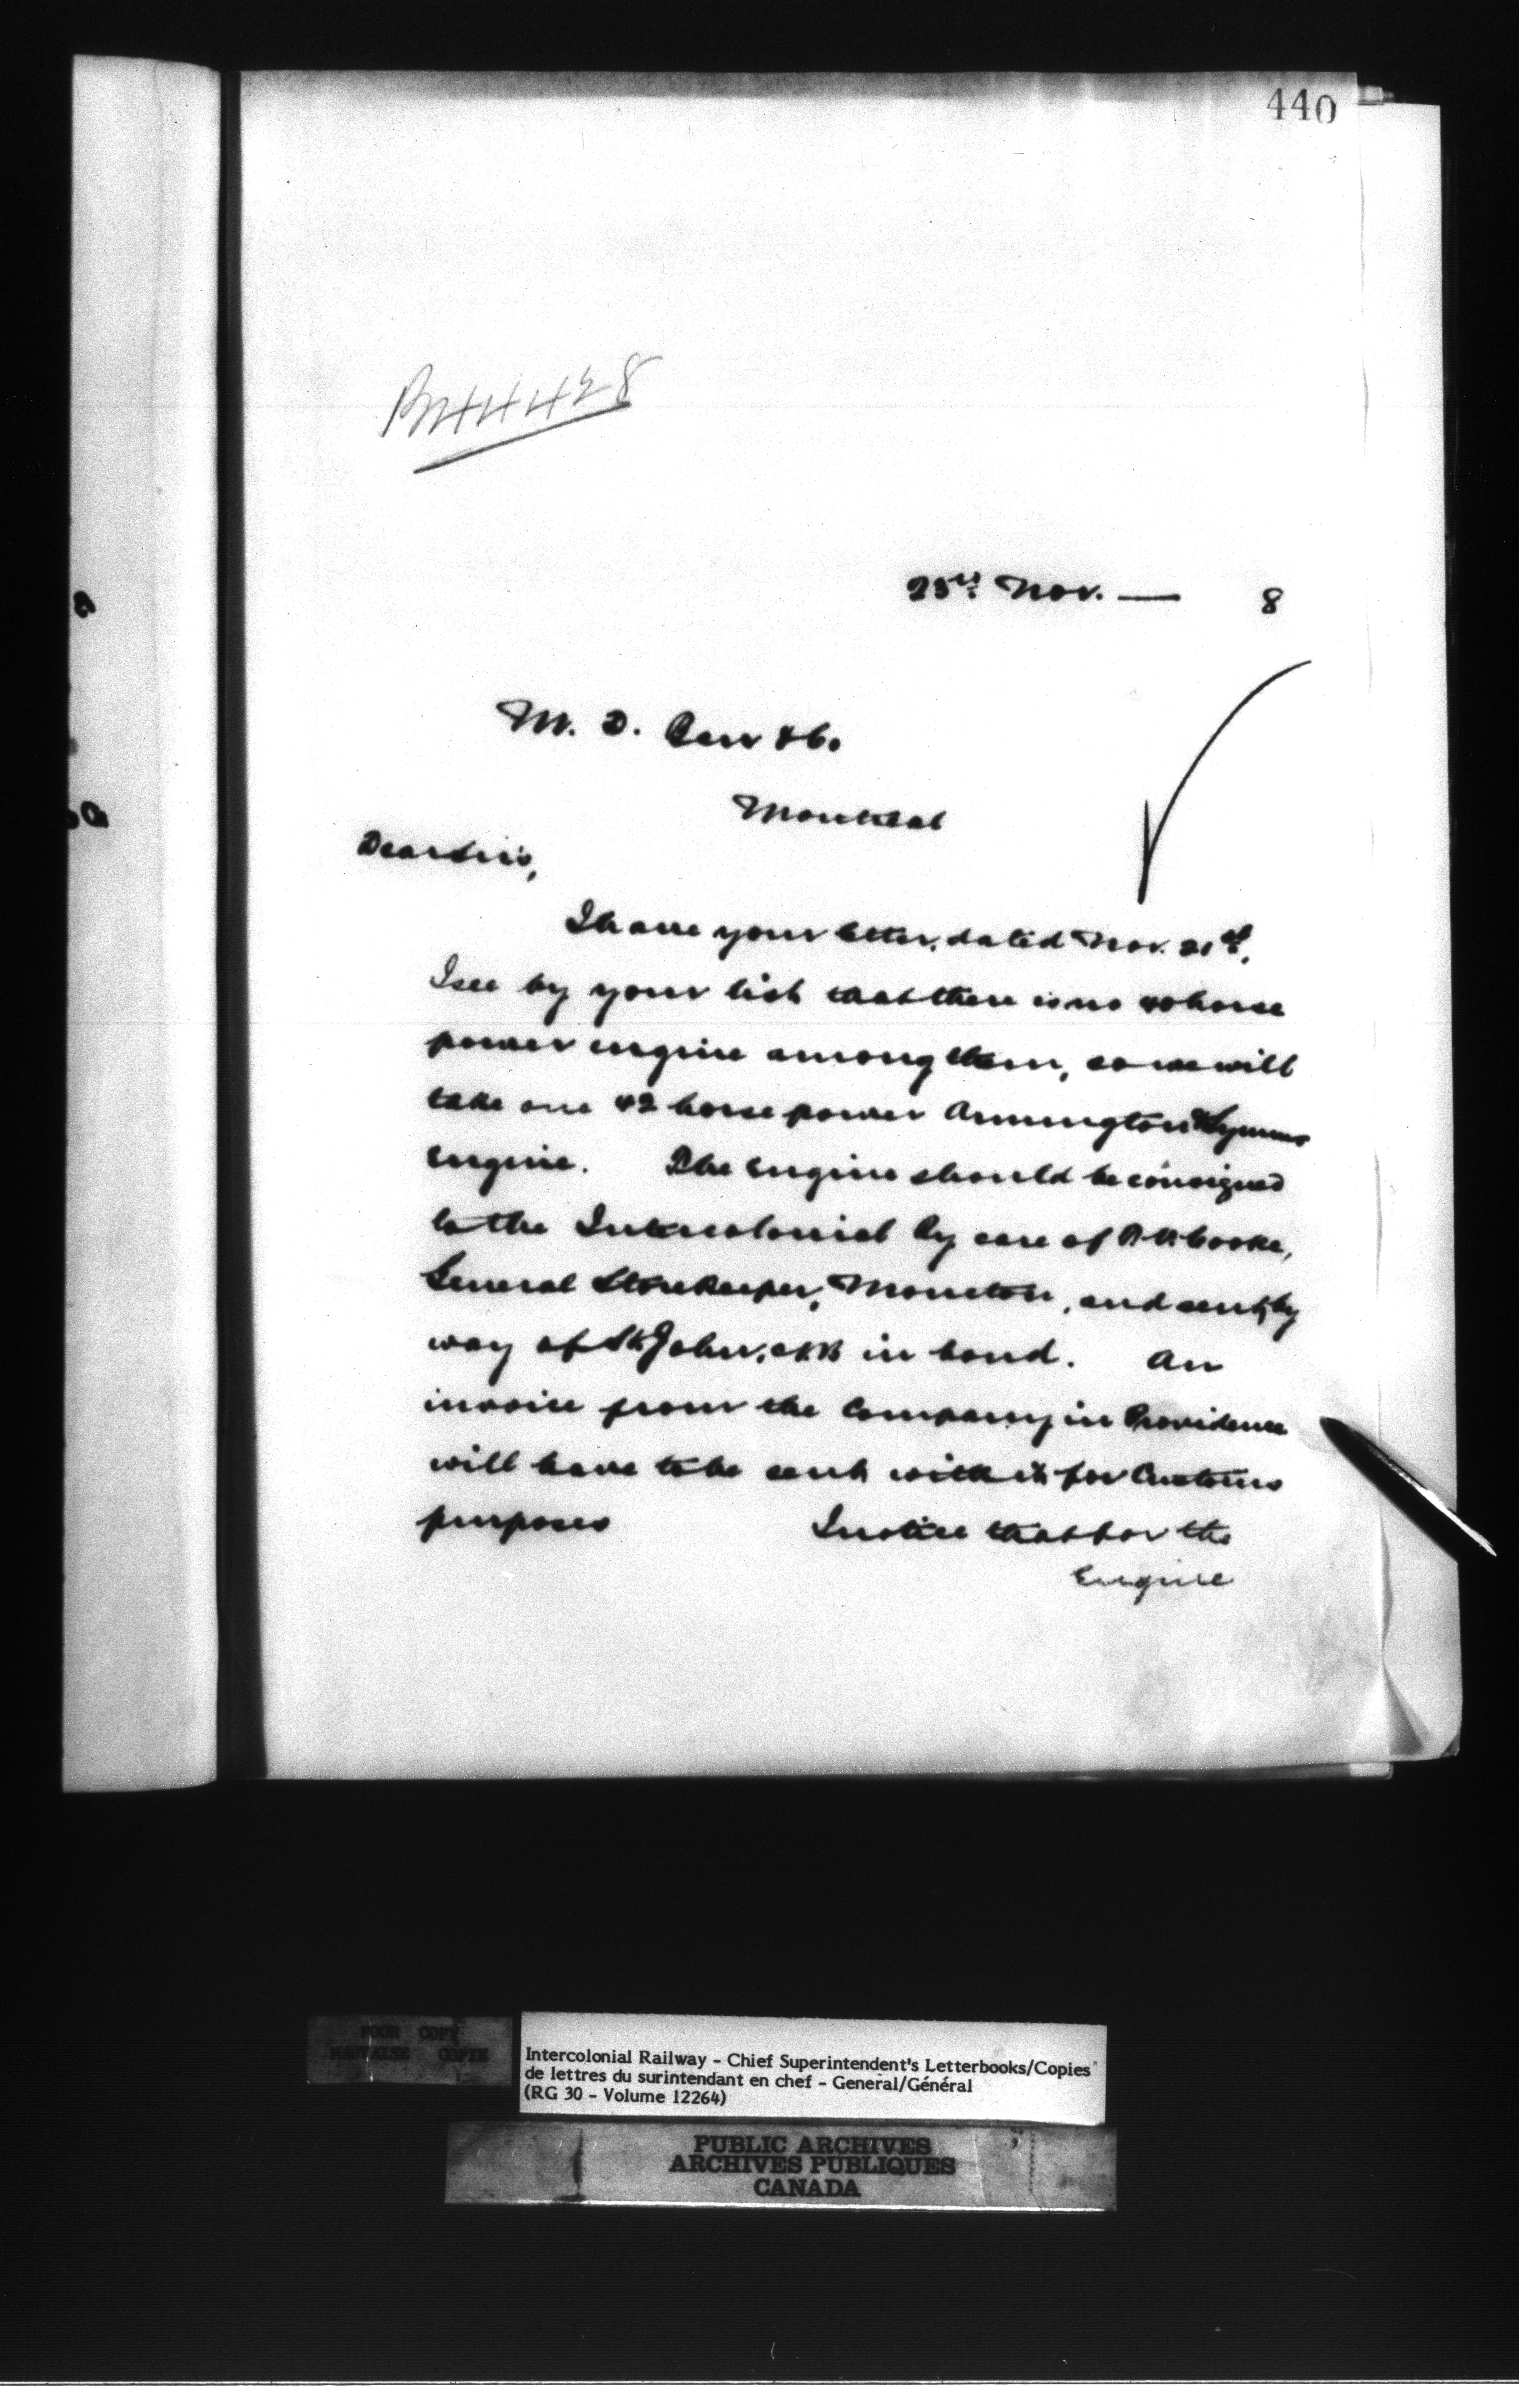 440
44428
23rd Nov. — 8
M. D. Barr & Co.
Montreal
Dear Sirs,
I have your letter, dated Nov. 21st.
I see by your list that there is no 40 horse
power engine among them, so we will
take one 42 horse power Armington & Symms
engine. The engine should be consigned
to the Intercolonial Ry care of Cooke,
General Storekeeper, Moncton, and sent by
way of St John, N.B in bond. An
invoice from the Company in Providence
will have to be sent with it for Customs
purposes I notice that for the
Engine
POOR COPY
MAUVAISE COPIE
Intercolonial Railway - Chief Superintendent's Letterbooks/Copies
de lettres du surintendant en chef - General/Général
(RG 30 - Volume 12264)
PUBLIC ARCHIVES
ARCHIVES PUBLIQUES
CANADA